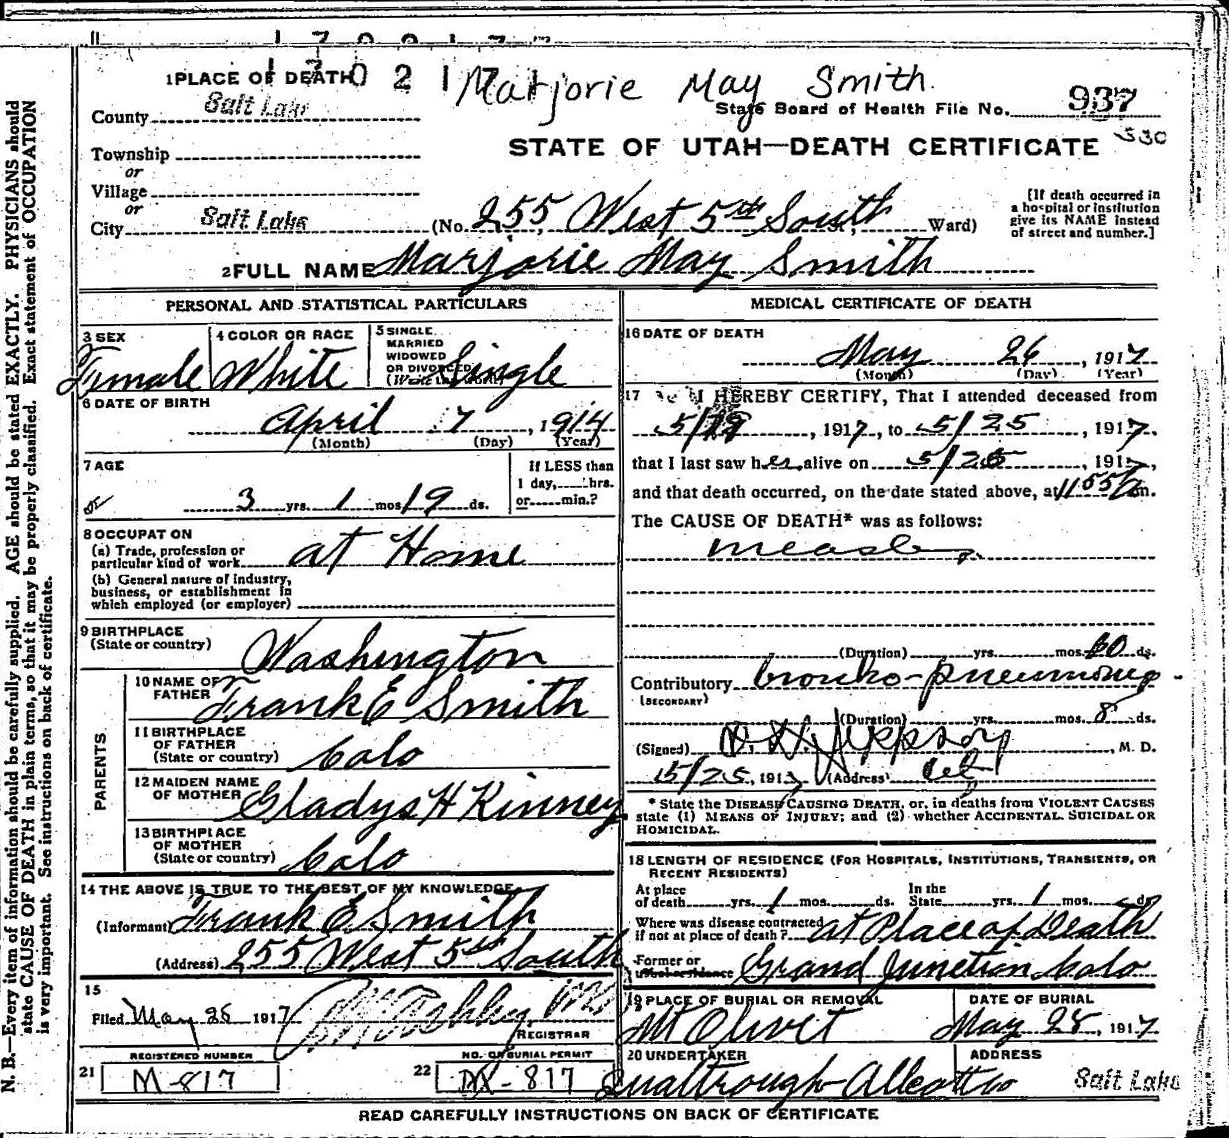 1 PLACE OF DEATH
17021
Marjorie May Smith
County Salt Lake
State Board of Health File No. 937
530
STATE OF UTAH—DEATH CERTIFICATE
Township
or
Village
or
City Salt Lake (No. 255 West 5th South Ward)
[If death occurred in a hospital or institution give its NAME instead of street and number.]
2 FULL NAME Marjorie May Smith
PERSONAL AND STATISTICAL PARTICULARS
3 SEX
Female
4 COLOR OR RACE
White
5 SINGLE
MARRIED
WIDOWED
OR DIVORCED
Single
6 DATE OF BIRTH
April 7, 1914
(Month) (Day) (Year)
7 AGE
3 yrs. 1 mos. 19 ds.
If LESS than
1 day, hrs.
or min.?
8 OCCUPATION
(a) Trade, profession or
particular kind of work at Home
(b) General nature of industry,
business, or establishment in
which employed (or employer)
9 BIRTHPLACE
(State or country) Washington
PARENTS
10 NAME OF
FATHER Frank E Smith
11 BIRTHPLACE
OF FATHER
(State or country) Colo
12 MAIDEN NAME
OF MOTHER Gladys H Kinney
13 BIRTHPLACE
OF MOTHER
(State or country) Colo
14 THE ABOVE IS TRUE TO THE BEST OF MY KNOWLEDGE
(Informant) Frank E Smith
(Address) 255 West 5th South
15
Filed May 28 1917
REGISTRAR
REGISTERED NUMBER
21 M-817
NO. OF BURIAL PERMIT
22 -817
MEDICAL CERTIFICATE OF DEATH
16 DATE OF DEATH
May 26, 1917
(Month) (Day) (Year)
17 I HEREBY CERTIFY, That I attended deceased from
5/19, 1917, to 5/25, 1917,
that I last saw her alive on 5/25, 1917,
and that death occurred, on the date stated above, at 1155 m.
The CAUSE OF DEATH* was as follows:
measles
(Duration) yrs. mos. 10 ds.
Contributory bronko-pneumonia
(SECONDARY)
(Duration) yrs. mos. 8 ds.
(Signed) Jeppson, M. D.
5/25, 1917 (Address)
* State the DISEASE CAUSING DEATH, or, in deaths from VIOLENT CAUSES
state (1) MEANS OF INJURY; and (2) whether ACCIDENTAL, SUICIDAL OR
HOMICIDAL.
18 LENGTH OF RESIDENCE (FOR HOSPITALS, INSTITUTIONS, TRANSIENTS, OR
RECENT RESIDENTS)
At place
of death yrs. 1 mos. ds. In the
State yrs. 1 mos. ds.
Where was disease contracted
if not at place of death? at Place of Death
Former or
usual residence Grand Junction Colo
19 PLACE OF BURIAL OR REMOVAL
Mt Olivet
DATE OF BURIAL
May 28, 1917
20 UNDERTAKER
Qualtrough-Alcott Co
ADDRESS
Salt Lake
READ CAREFULLY INSTRUCTIONS ON BACK OF CERTIFICATE
N. B.—Every item of information should be carefully supplied. AGE should be stated EXACTLY. PHYSICIANS should
state CAUSE OF DEATH in plain terms, so that it may be properly classified. Exact statement of OCCUPATION
is very important. See instructions on back of certificate.